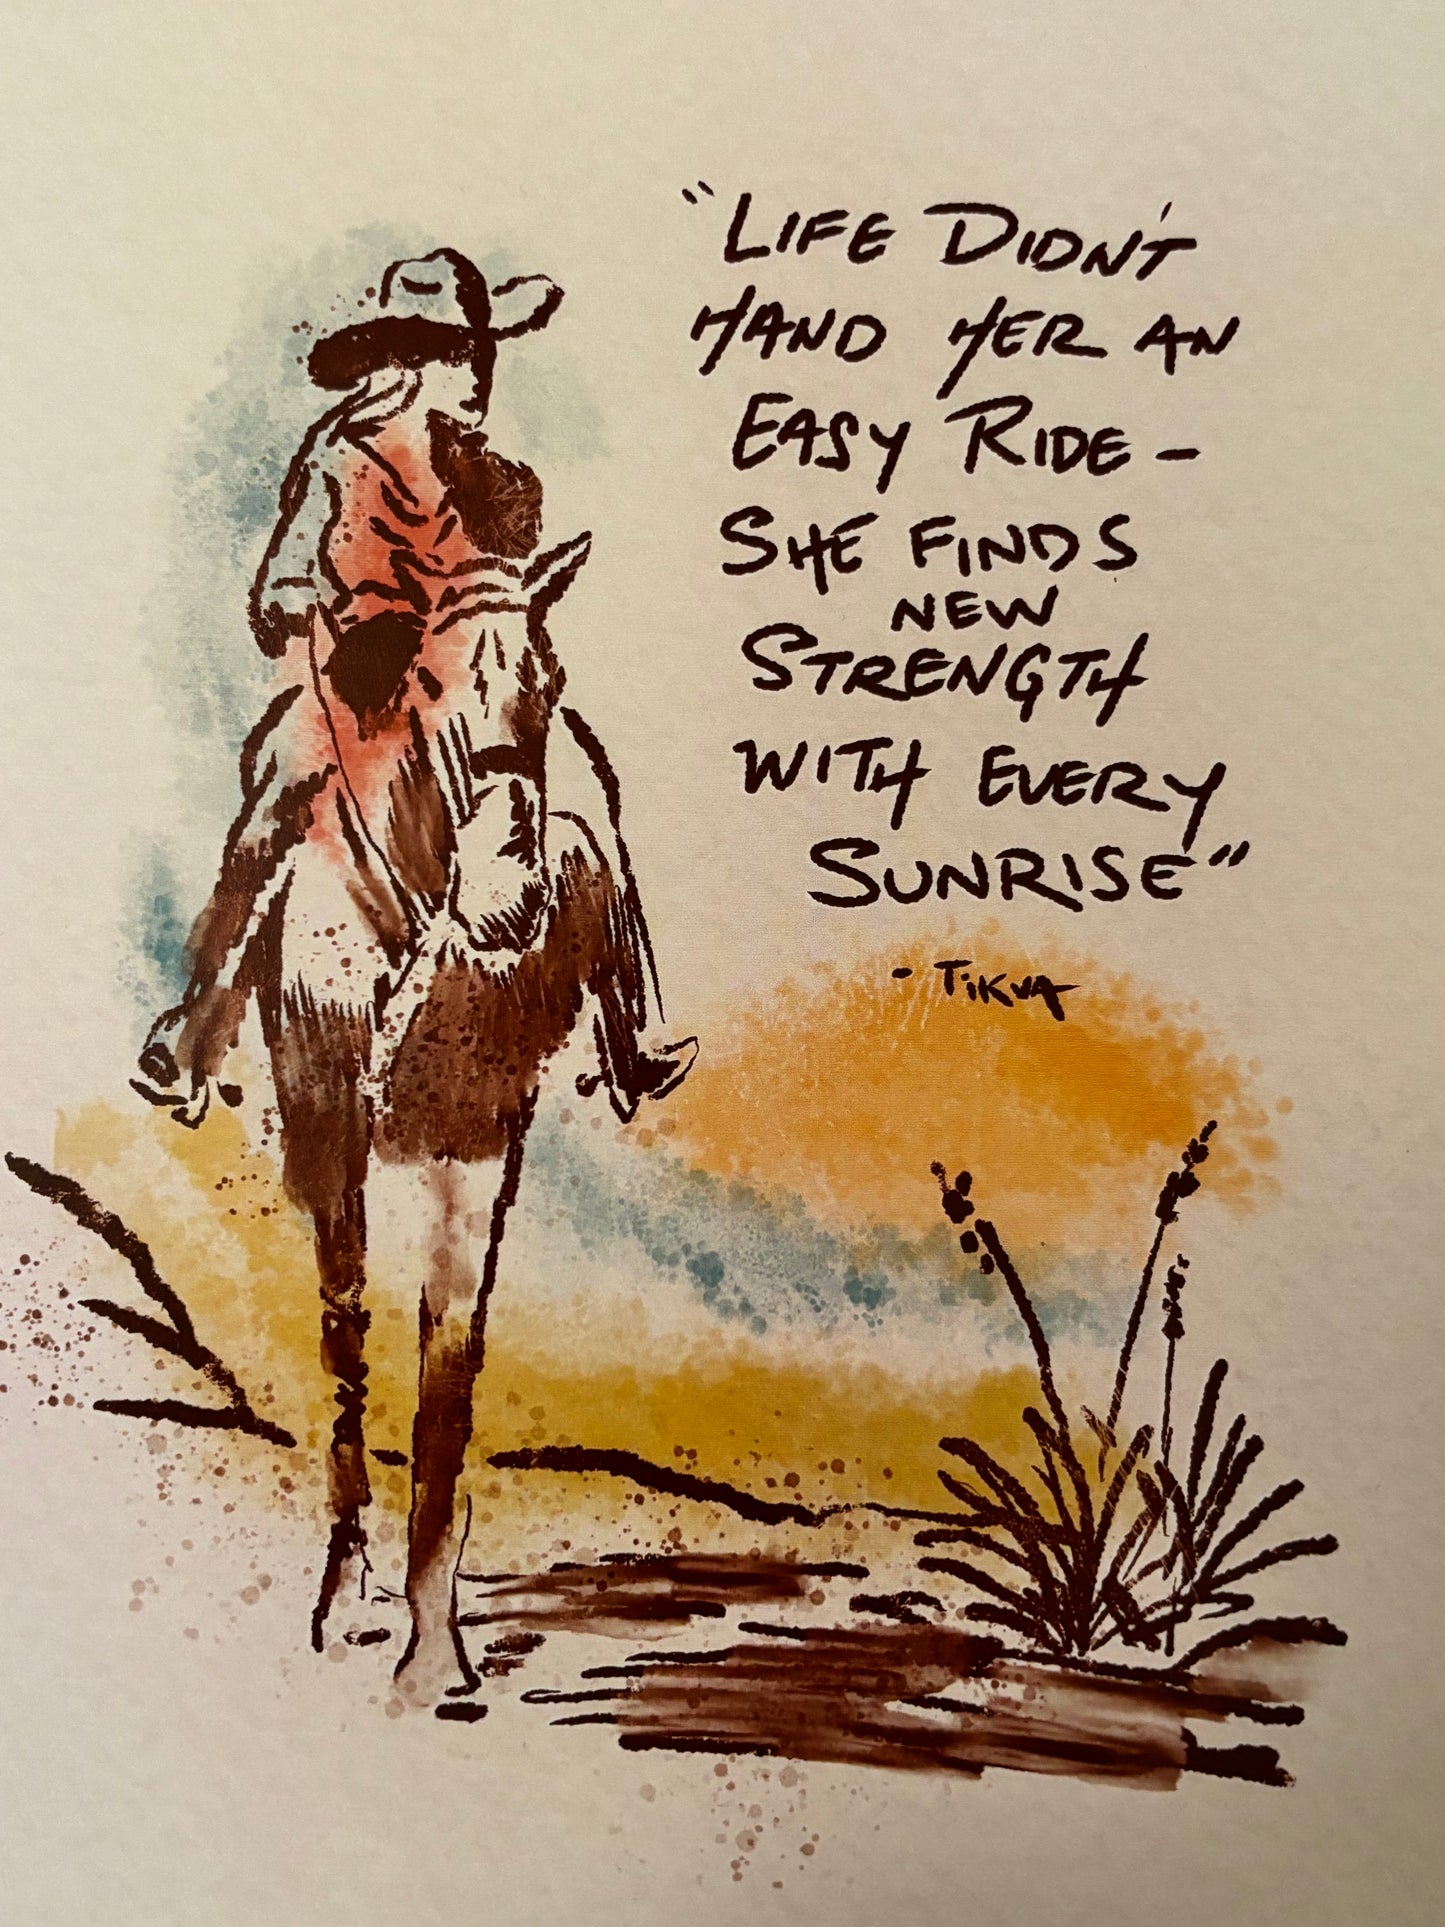 "LIFE DIDN'T
HAND HER AN
EASY RIDE -
SHE FINDS
NEW
STRENGTH
WITH EVERY
SUNRISE"
- TIKVA